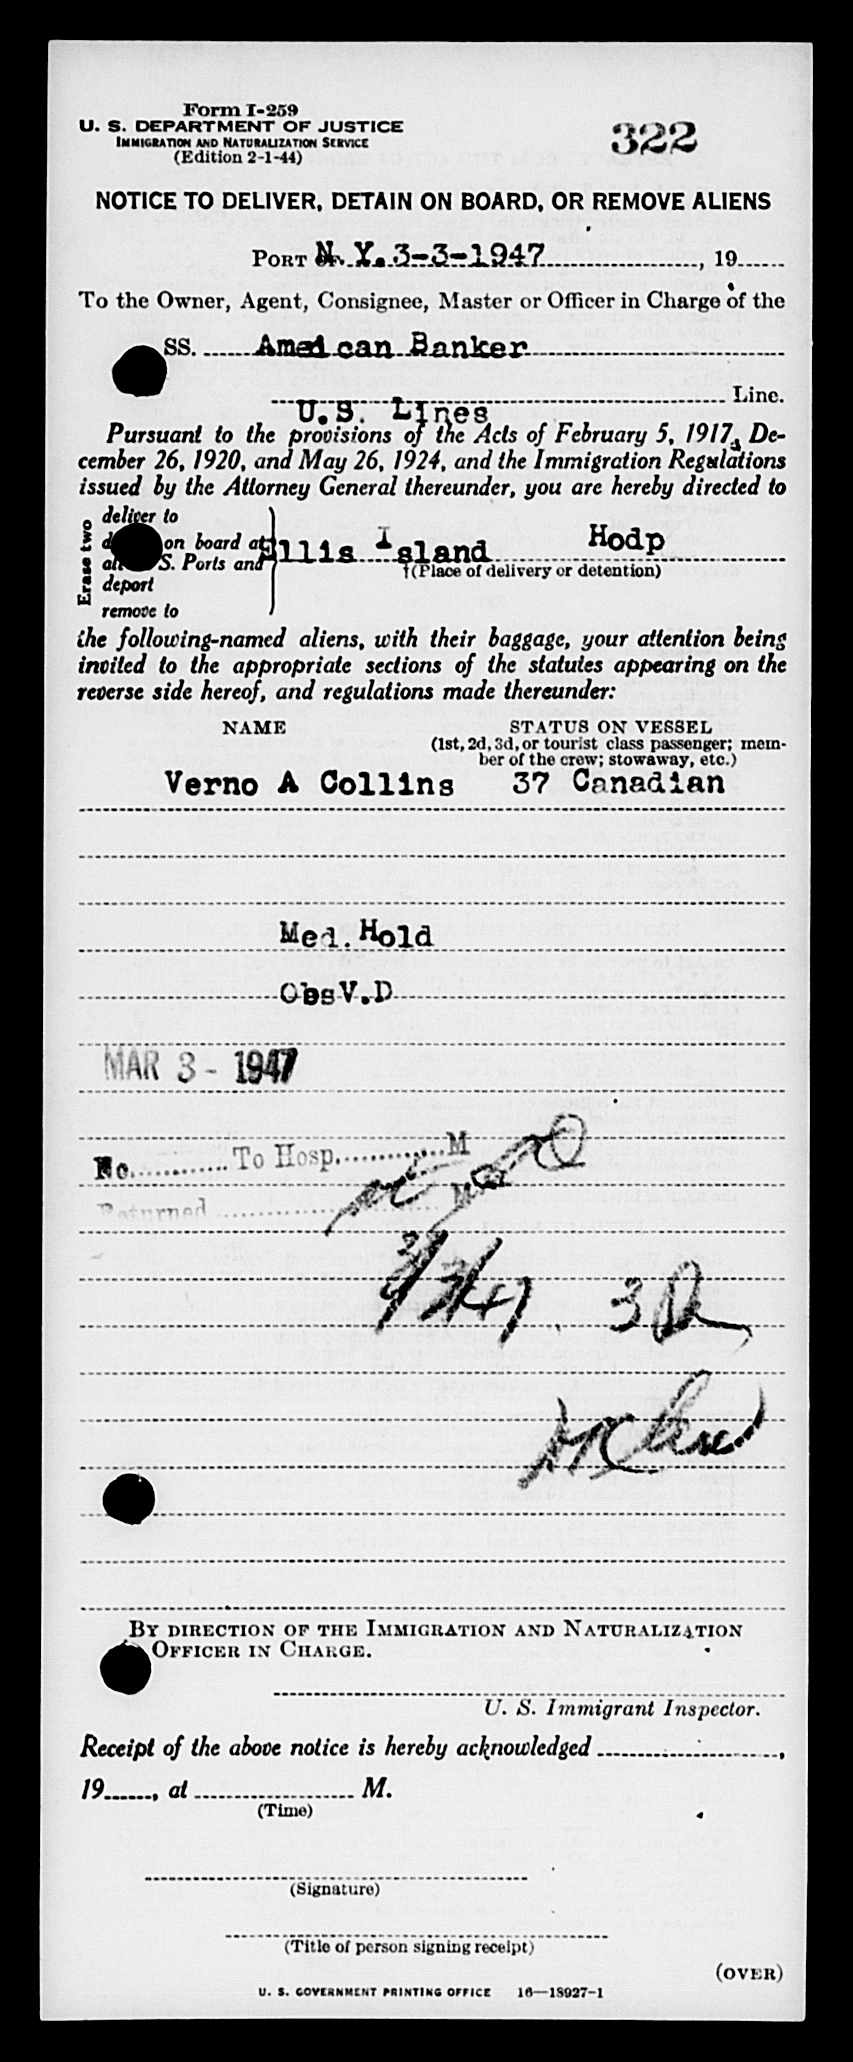 Form I-259
U. S. DEPARTMENT OF JUSTICE
IMMIGRATION AND NATURALIZATION SERVICE
(Edition 2-1-44)
322
NOTICE TO DELIVER, DETAIN ON BOARD, OR REMOVE ALIENS
PORT OF N. Y. 3-3-1947, 19
To the Owner, Agent, Consignee, Master or Officer in Charge of the
SS. American Banker
Line.
U.S. Lines
Pursuant to the provisions of the Acts of February 5, 1917, De-
cember 26, 1920, and May 26, 1924, and the Immigration Regulations
issued by the Attorney General thereunder, you are hereby directed to
Erase two
deliver to
on board at
S. Ports and
deport
remove to
Ellis Island Hodp
†(Place of delivery or detention)
the following-named aliens, with their baggage, your attention being
invited to the appropriate sections of the statutes appearing on the
reverse side hereof, and regulations made thereunder:
NAME STATUS ON VESSEL
(1st, 2d, 3d, or tourist class passenger; mem-
ber of the crew; stowaway, etc.)
Verno A Collins 37 Canadian
Med. Hold
Obs V.D
MAR 3 - 1947
To Hosp. M
Returned M
3/3/47
BY DIRECTION OF THE IMMIGRATION AND NATURALIZATION
OFFICER IN CHARGE.
U. S. Immigrant Inspector.
Receipt of the above notice is hereby acknowledged ,
19 , at M.
(Time)
(Signature)
(Title of person signing receipt)
(OVER)
U. S. GOVERNMENT PRINTING OFFICE 16—18927-1